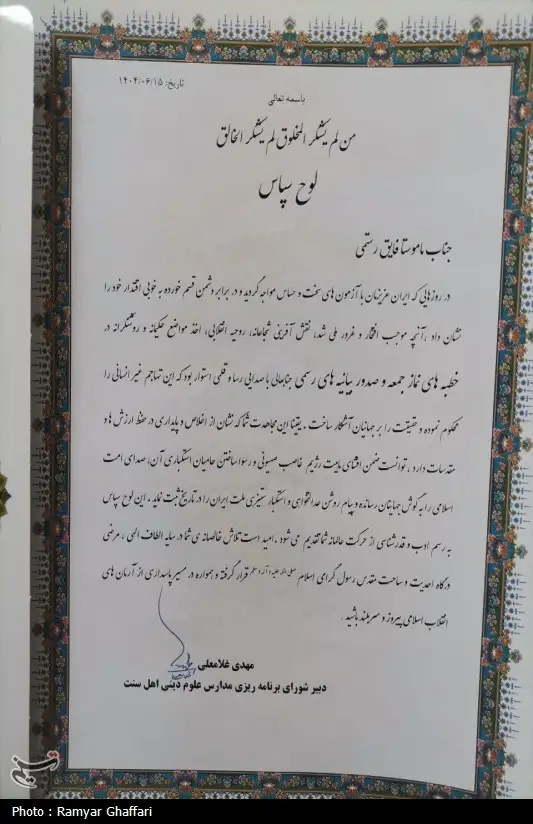 تاریخ: ۱۴۰۴/۰۶/۱۵
باسمه تعالی
من لم یشکر المخلوق لم یشکر الخالق
لوح سپاس
جناب ماموستا فایق رستمی
در روزهایی که ایران عزیزمان با آزمون های سخت و حساس مواجه گردید و در برابر دشمن قسم خورده به خوبی اقتدار خود را
نشان داد، آنچه موجب افتخار و غرور ملی شد، نقش آفرینی شجاعانه، روحیه انقلابی، اخذ مواضع حکیمانه و روشنگرانه در
خطبه های نماز جمعه و صدور بیانیه های رسمی جنابعالی با صدایی رسا و قلمی استوار بود که این تهاجم غیر انسانی را
محکوم نموده و حقیقت را بر جهانیان آشکار ساخت. یقینا این مجاهدت شما که نشان از اخلاص و پایداری در حفظ ارزش ها و
مقدسات دارد، توانست ضمن افشای ماهیت رژیم غاصب صهیونی و رسوا ساختن حامیان استکباری آن، صدای امت
اسلامی را به گوش جهانیان رسانده و پیام روشن عدالتخواهی و استکبار ستیزی ملت ایران را در تاریخ ثبت نماید. این لوح سپاس
به رسم ادب و قدرشناسی از حرکت عالمانه شما تقدیم می شود. امید است تلاش خالصانه ی شما در سایه الطاف الهی، مرضی
درگاه احدیت و ساحت مقدس رسول گرامی اسلام صلی الله علیه و آله و سلم قرار گرفته و همواره در مسیر پاسداری از آرمان های
انقلاب اسلامی پیروز و سربلند باشید.
مهدی غلامعلی
دبیر شورای برنامه ریزی مدارس علوم دینی اهل سنت
تسنیم
Photo : Ramyar Ghaffari